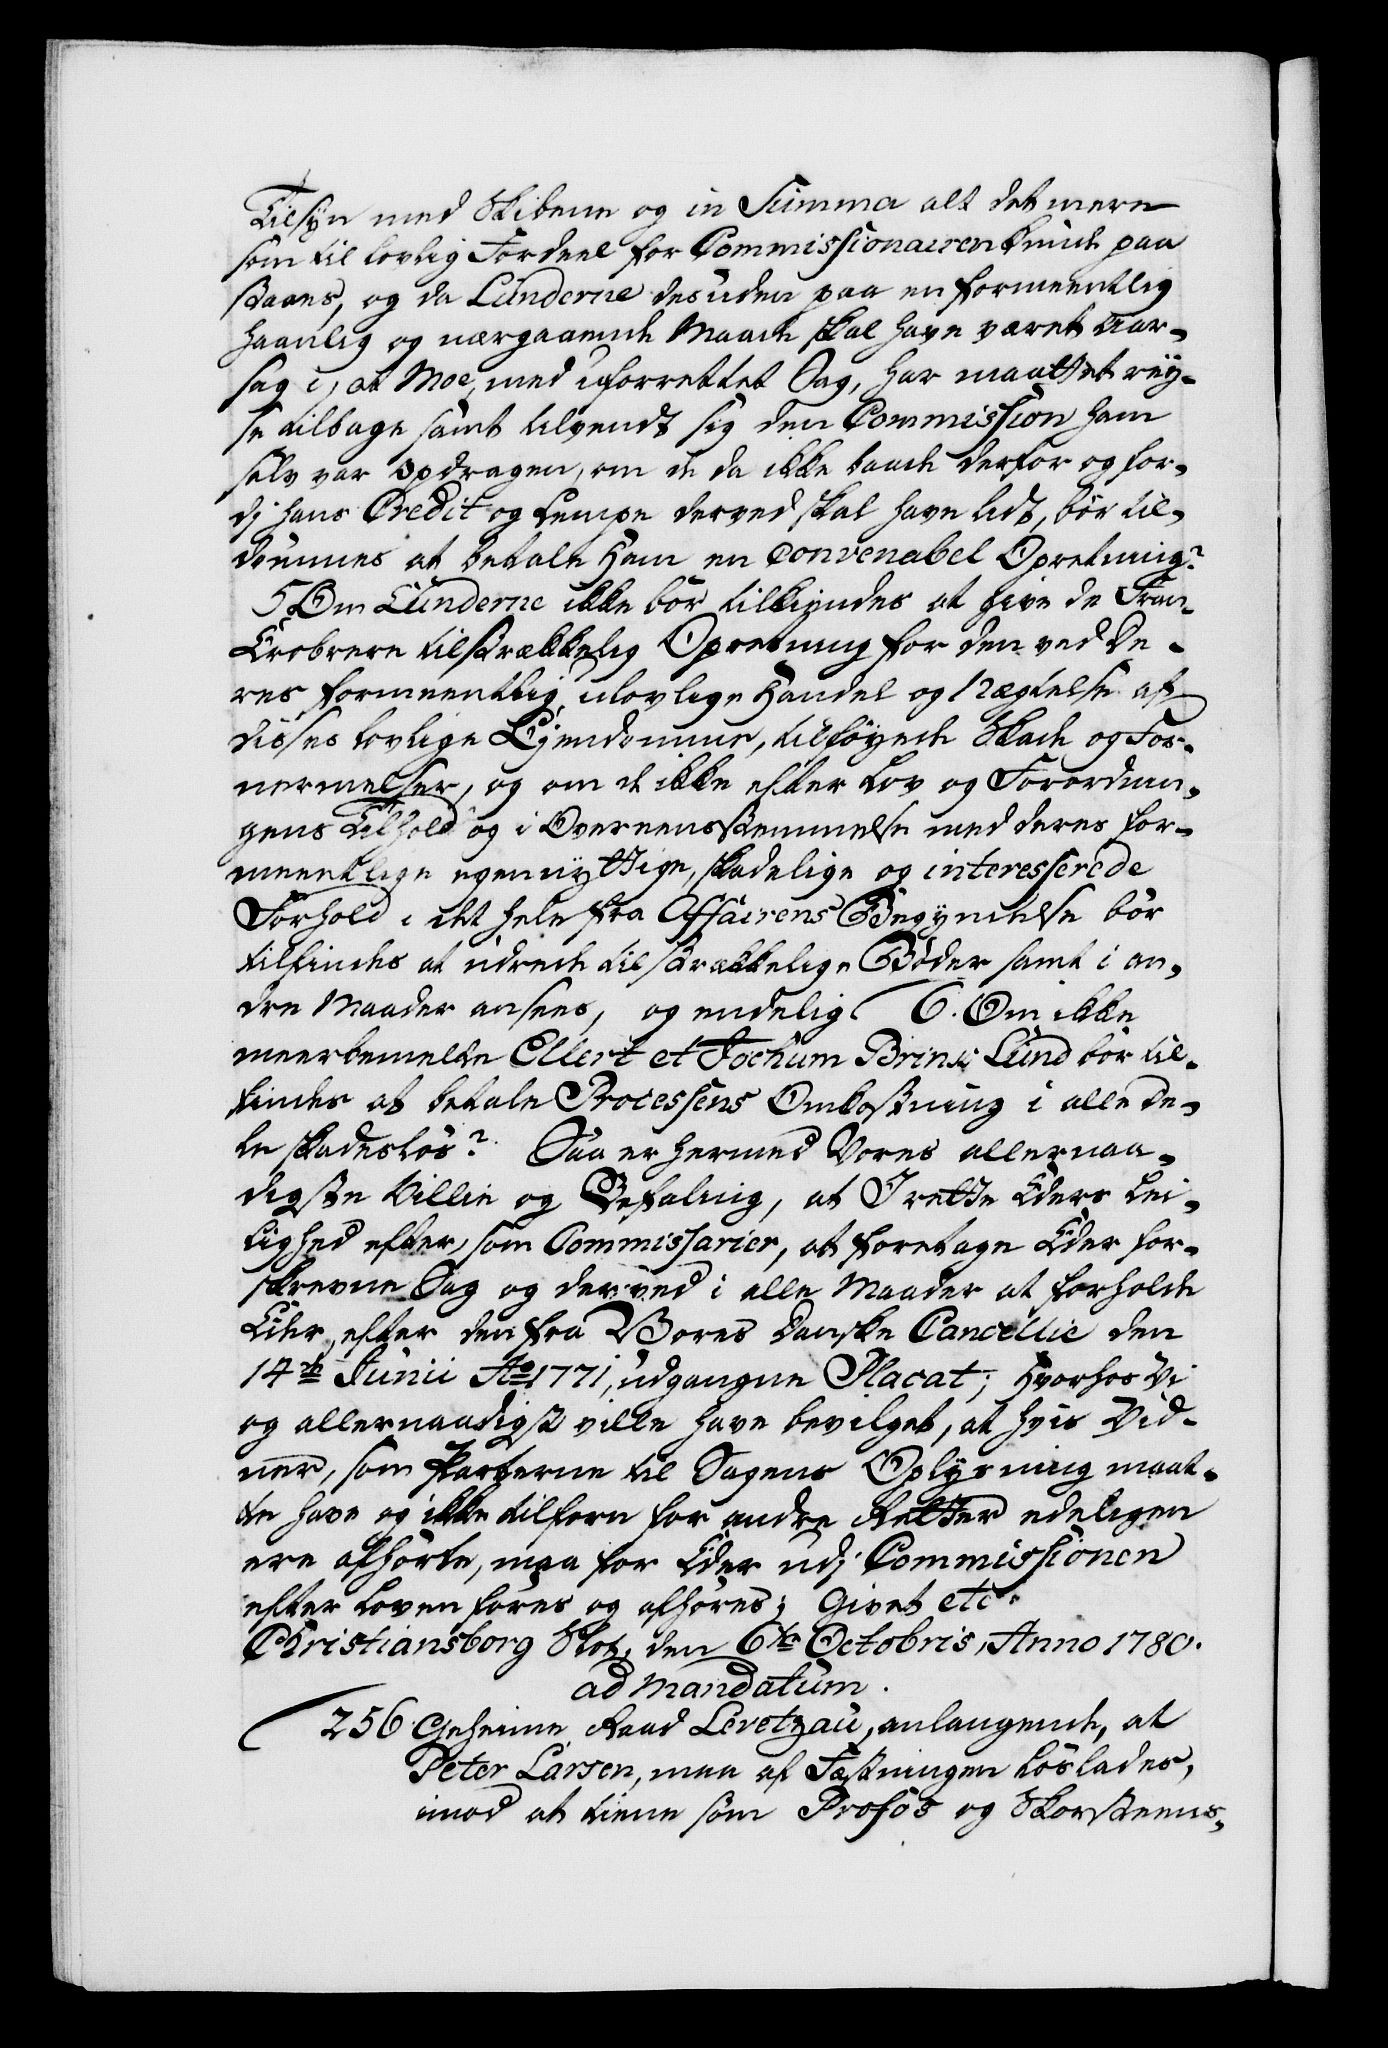 Tilsyn med Skibene og in Summa alt det mere
som til lovlig Fordeel for Commissionairen kunde paa
staaes, og da Lunderne desuden paa en formeentlig
haanlig og nærgaaende Maade skal have været Aar-
sag i, at Moe, med uforrettet Sag, har maattet rey-
se tilbage samt tilvendt sig den Commission ham
selv var opdragen, om de da ikke baade derfor og for-
di hans Credit og Lempe derved skal have lidt, bør til-
dømmes at betale Ham en convenabel Opretning?
5 Om Lunderne ikke bør tilkiendes at give de Fran-
Erobrere tilstrækkelig Opretning for den ved De-
res formeentlig ulovlige Handel og Nægtelse af
disses lovlige Ejendomme, tilføyede Skade og For-
nermelser, og om de ikke efter Lov og Forordnin-
gens Tilhold og i Overeensstemmelse med deres for-
meentlige egennyttige, skadelige og interesserede
Forhold i det hele fra Affairens Begyndelse bør
tilfindes at udrede tilstrækkelige Bøder samt i an-
dre Maader ansees, og endelig 6. Om ikke
meerbemelte Ellert et Jochum Brinx Lund bør til-
findes at betale Processens Omkostning i alle De-
le skadesløs? Saa er hermed Vores allernaa-
digste Villie og Befaling, at I rette Eders Lei-
lighed efter, som Commissarier, at foretage Eder for-
skrevne Sag og derved i alle Maader at forholde
Eder, efter den fra Vores Danske Cancellie den
14de Junii Ao 1771, udgangne Placat; Hvorhos Vi
og allernaadigst ville have bevilget, at hvis Vid-
ner, som Parterne til Sagens Oplysning maat-
te have og ikke tilforn for andre Retter edeligen
ere afhørte, maa for Eder udj Commissionen
efter Loven føres og afhøres; Givet etc.
Christiansborg Slot, den 6te Octobris, Anno 1780.
ad mandatum.
256 Geheime Raad Levetzau, anlangende, at
Peter Larsen, maa af Fæstningen løslades,
imod at tiene som Profos og Skorsteens-